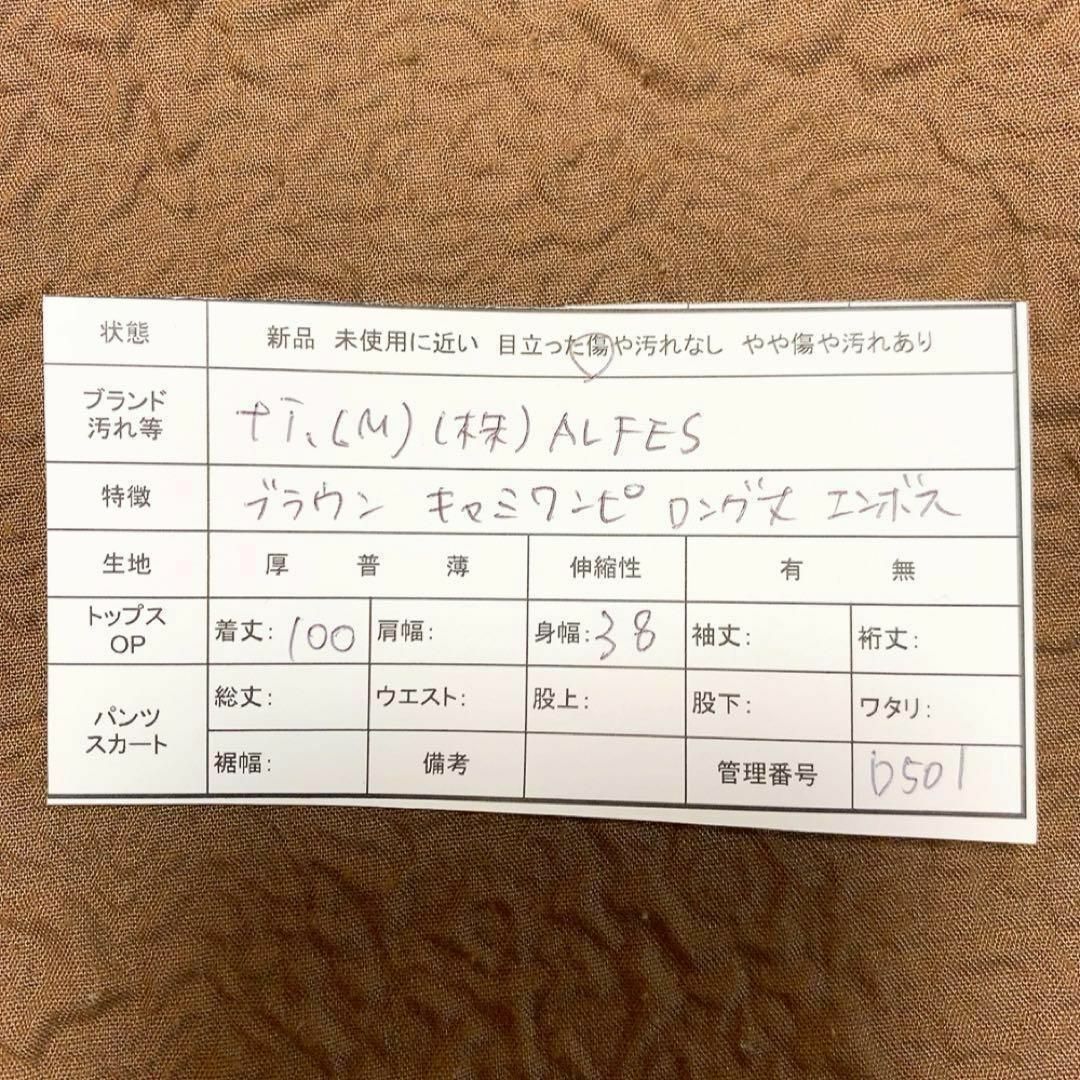 状態 新品 未使用に近い 目立った傷や汚れなし やや傷や汚れあり
ブランド
汚れ等 (M) (株) ALFES
特徴 ブラウン キャミワンピ ロング丈 エンボス
生地 厚 普 薄 伸縮性 有 無
トップス
OP 着丈: 100 肩幅: 身幅: 38 袖丈: 裄丈:
パンツ
スカート 総丈: ウエスト: 股上: 股下: ワタリ:
裾幅: 備考 管理番号 D501